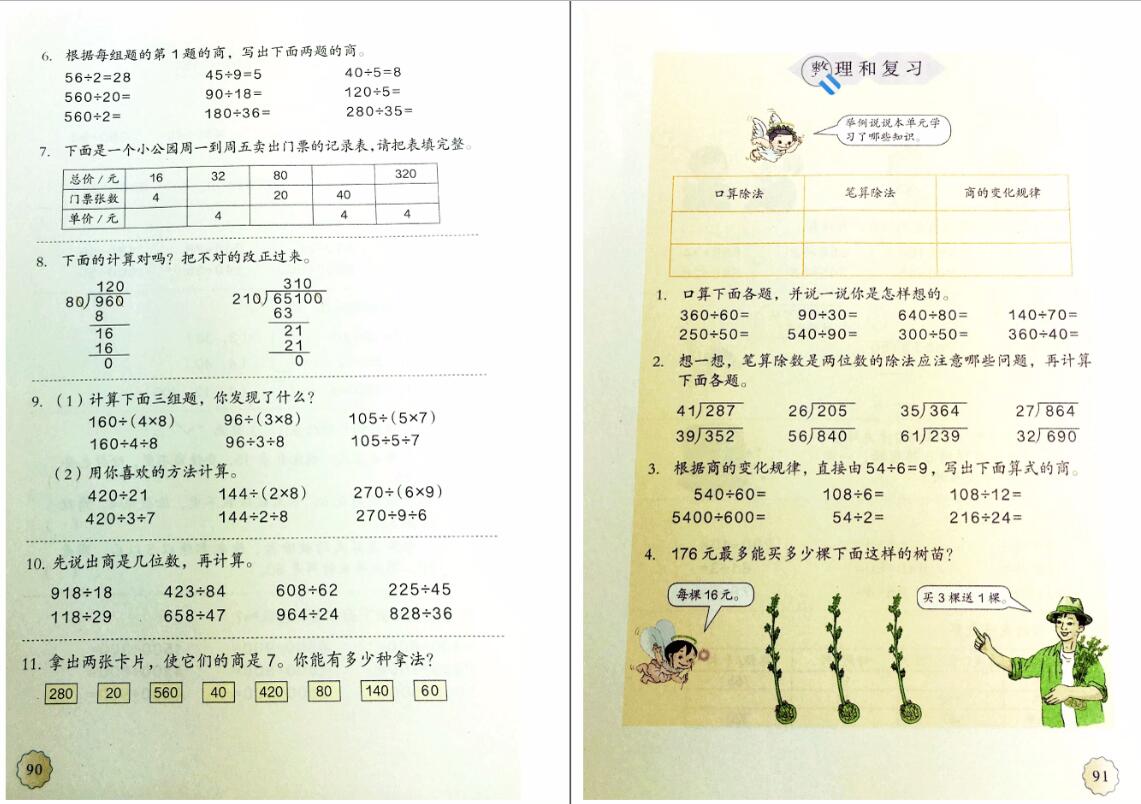 6. 根据每组题的第1题的商，写出下面两题的商。
56÷2=28 45÷9=5 40÷5=8
560÷20= 90÷18= 120÷5=
560÷2= 180÷36= 280÷35=
7. 下面是一个小公园周一到周五卖出门票的记录表,请把表填完整。
总价/元 16 32 80 320
门票张数 4 20 40
单价/元 4 4 4
8. 下面的计算对吗？把不对的改正过来。
120 310
80)960 210)65100
8 63
16 21
16 21
0 0
9.（1）计算下面三组题，你发现了什么？
160÷(4×8) 96÷(3×8) 105÷(5×7)
160÷4÷8 96÷3÷8 105÷5÷7
（2）用你喜欢的方法计算。
420÷21 144÷(2×8) 270÷(6×9)
420÷3÷7 144÷2÷8 270÷9÷6
10. 先说出商是几位数，再计算。
918÷18 423÷84 608÷62 225÷45
118÷29 658÷47 964÷24 828÷36
11. 拿出两张卡片，使它们的商是7。你能有多少种拿法？
280 20 560 40 420 80 140 60
90
整理和复习
举例说说本单元学
习了哪些知识。
口算除法 笔算除法 商的变化规律
1. 口算下面各题，并说一说你是怎样想的。
360÷60= 90÷30= 640÷80= 140÷70=
250÷50= 540÷90= 300÷50= 360÷40=
2. 想一想，笔算除数是两位数的除法应注意哪些问题，再计算
下面各题。
41)287 26)205 35)364 27)864
39)352 56)840 61)239 32)690
3. 根据商的变化规律，直接由54÷6=9，写出下面算式的商。
540÷60= 108÷6= 108÷12=
5400÷600= 54÷2= 216÷24=
4. 176元最多能买多少棵下面这样的树苗？
每棵16元。
买3棵送1棵。
91